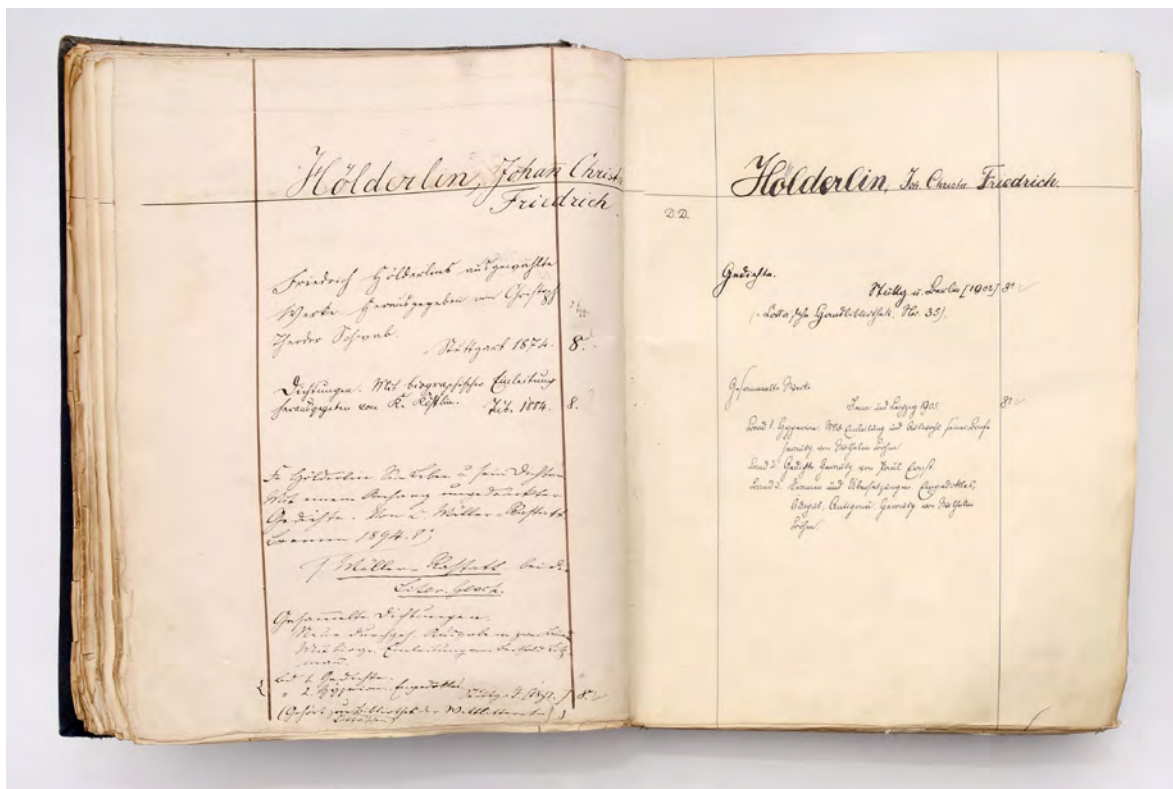 Hölderlin, Johan̄ Christ
Friedrich.
Friedrich Hölderlins ausgewählte
Werke. Herausgegeben von Christoph
Theodor Schwab.
Stuttgart 1874. 8.
Dichtungen. Mit biographischer Einleitung
herausgegeben von K. Köstlin. Tüb. 1884. 8.
Fr Hölderlin Sein Leben u sein Dichten
Mit einem Anhang ungedruckter
Gedichte. Von C. Müller-Rastatt
Bremen 1894. 8°
Müller-Rastatt bei der
Liter. Gesch.
Gesam̄elte Dichtungen.
Neue durchges. Ausgabe in zwei
Mit biogr. Einleitung von Berthold Litz-
man̄.
Bd 1. Gedichte.
" 2. Hyperion. Empedokles.
Stuttg. 8.
(Gehört zur Bibliothek der Weltlitteratur)
Hölderlin, Joh. Christn. Friedrich.
D.D.
Gedichte.
Stuttg u. Berlin [1902] 8°
(= Cotta'sche Handbibliothek. Nr. 35).
Gesammelte Werke
Jena und Leipzig 1905. 8°
Band 1. Hyperion. Mit Einleitung und Auswahl seiner Briefe
herausg von Wilhelm Böhm
Band 2. Gedichte herausg von Paul Ernst
Band 3. Dramen und Übersetzungen Empedokles,
Ödipus, Antigone herausg von Wilhelm
Böhm.